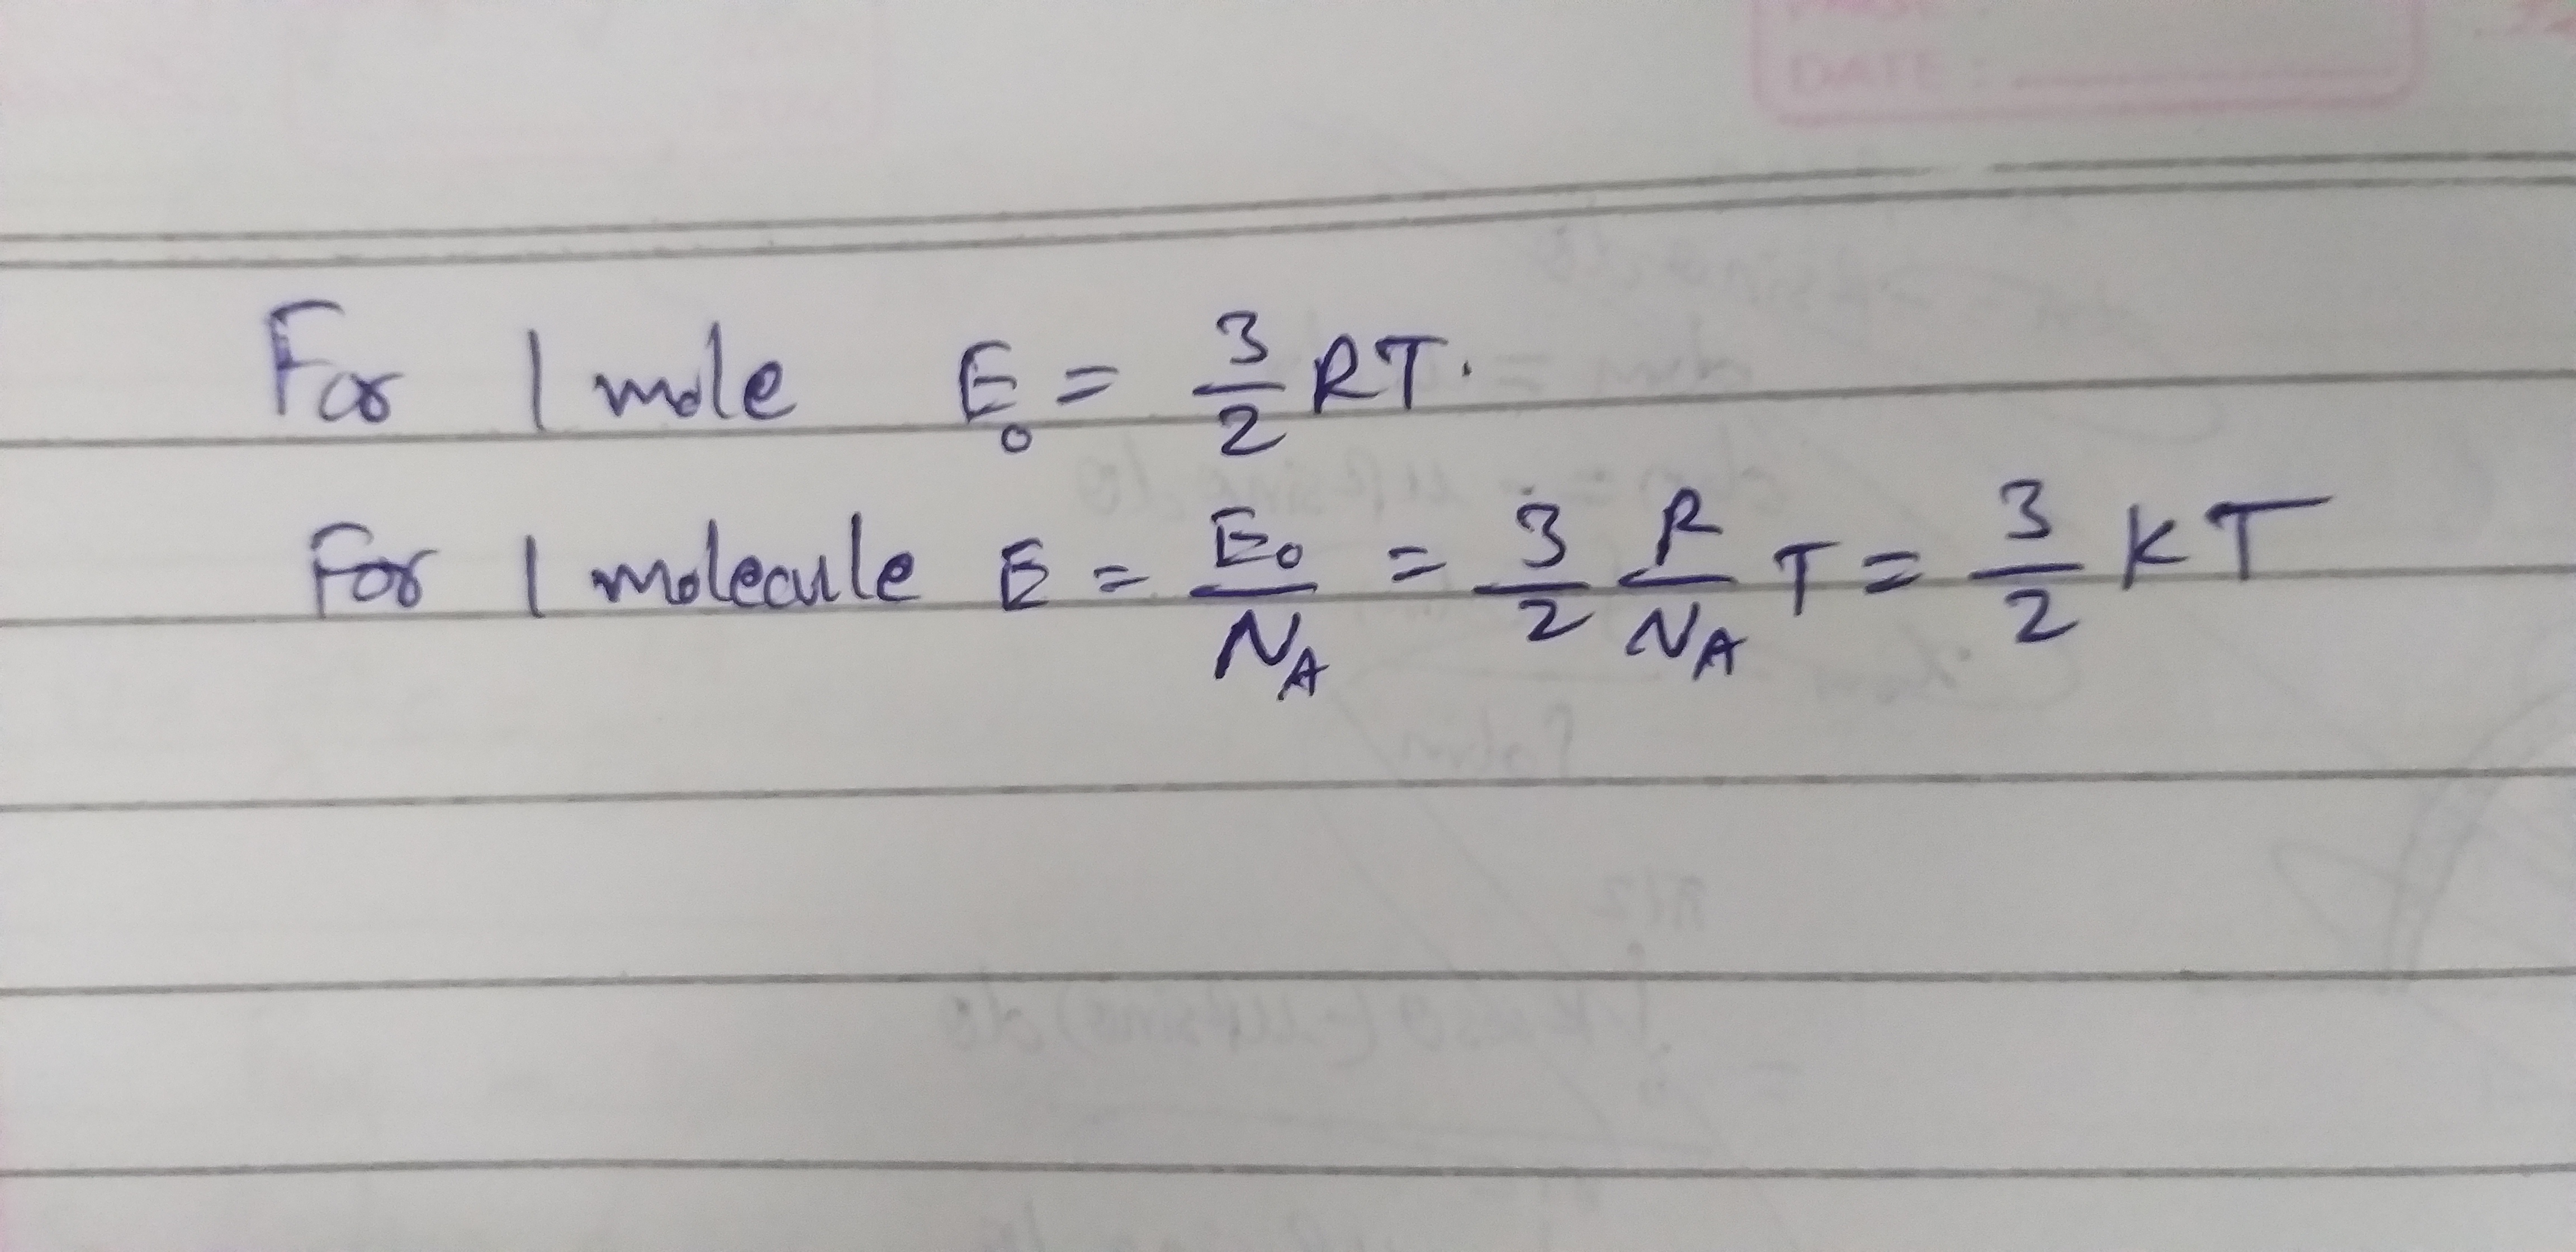 DATE :
For 1 mole E₀ = 3/2 RT.
For 1 molecule E = E₀/N_A = 3/2 R/N_A T = 3/2 KT